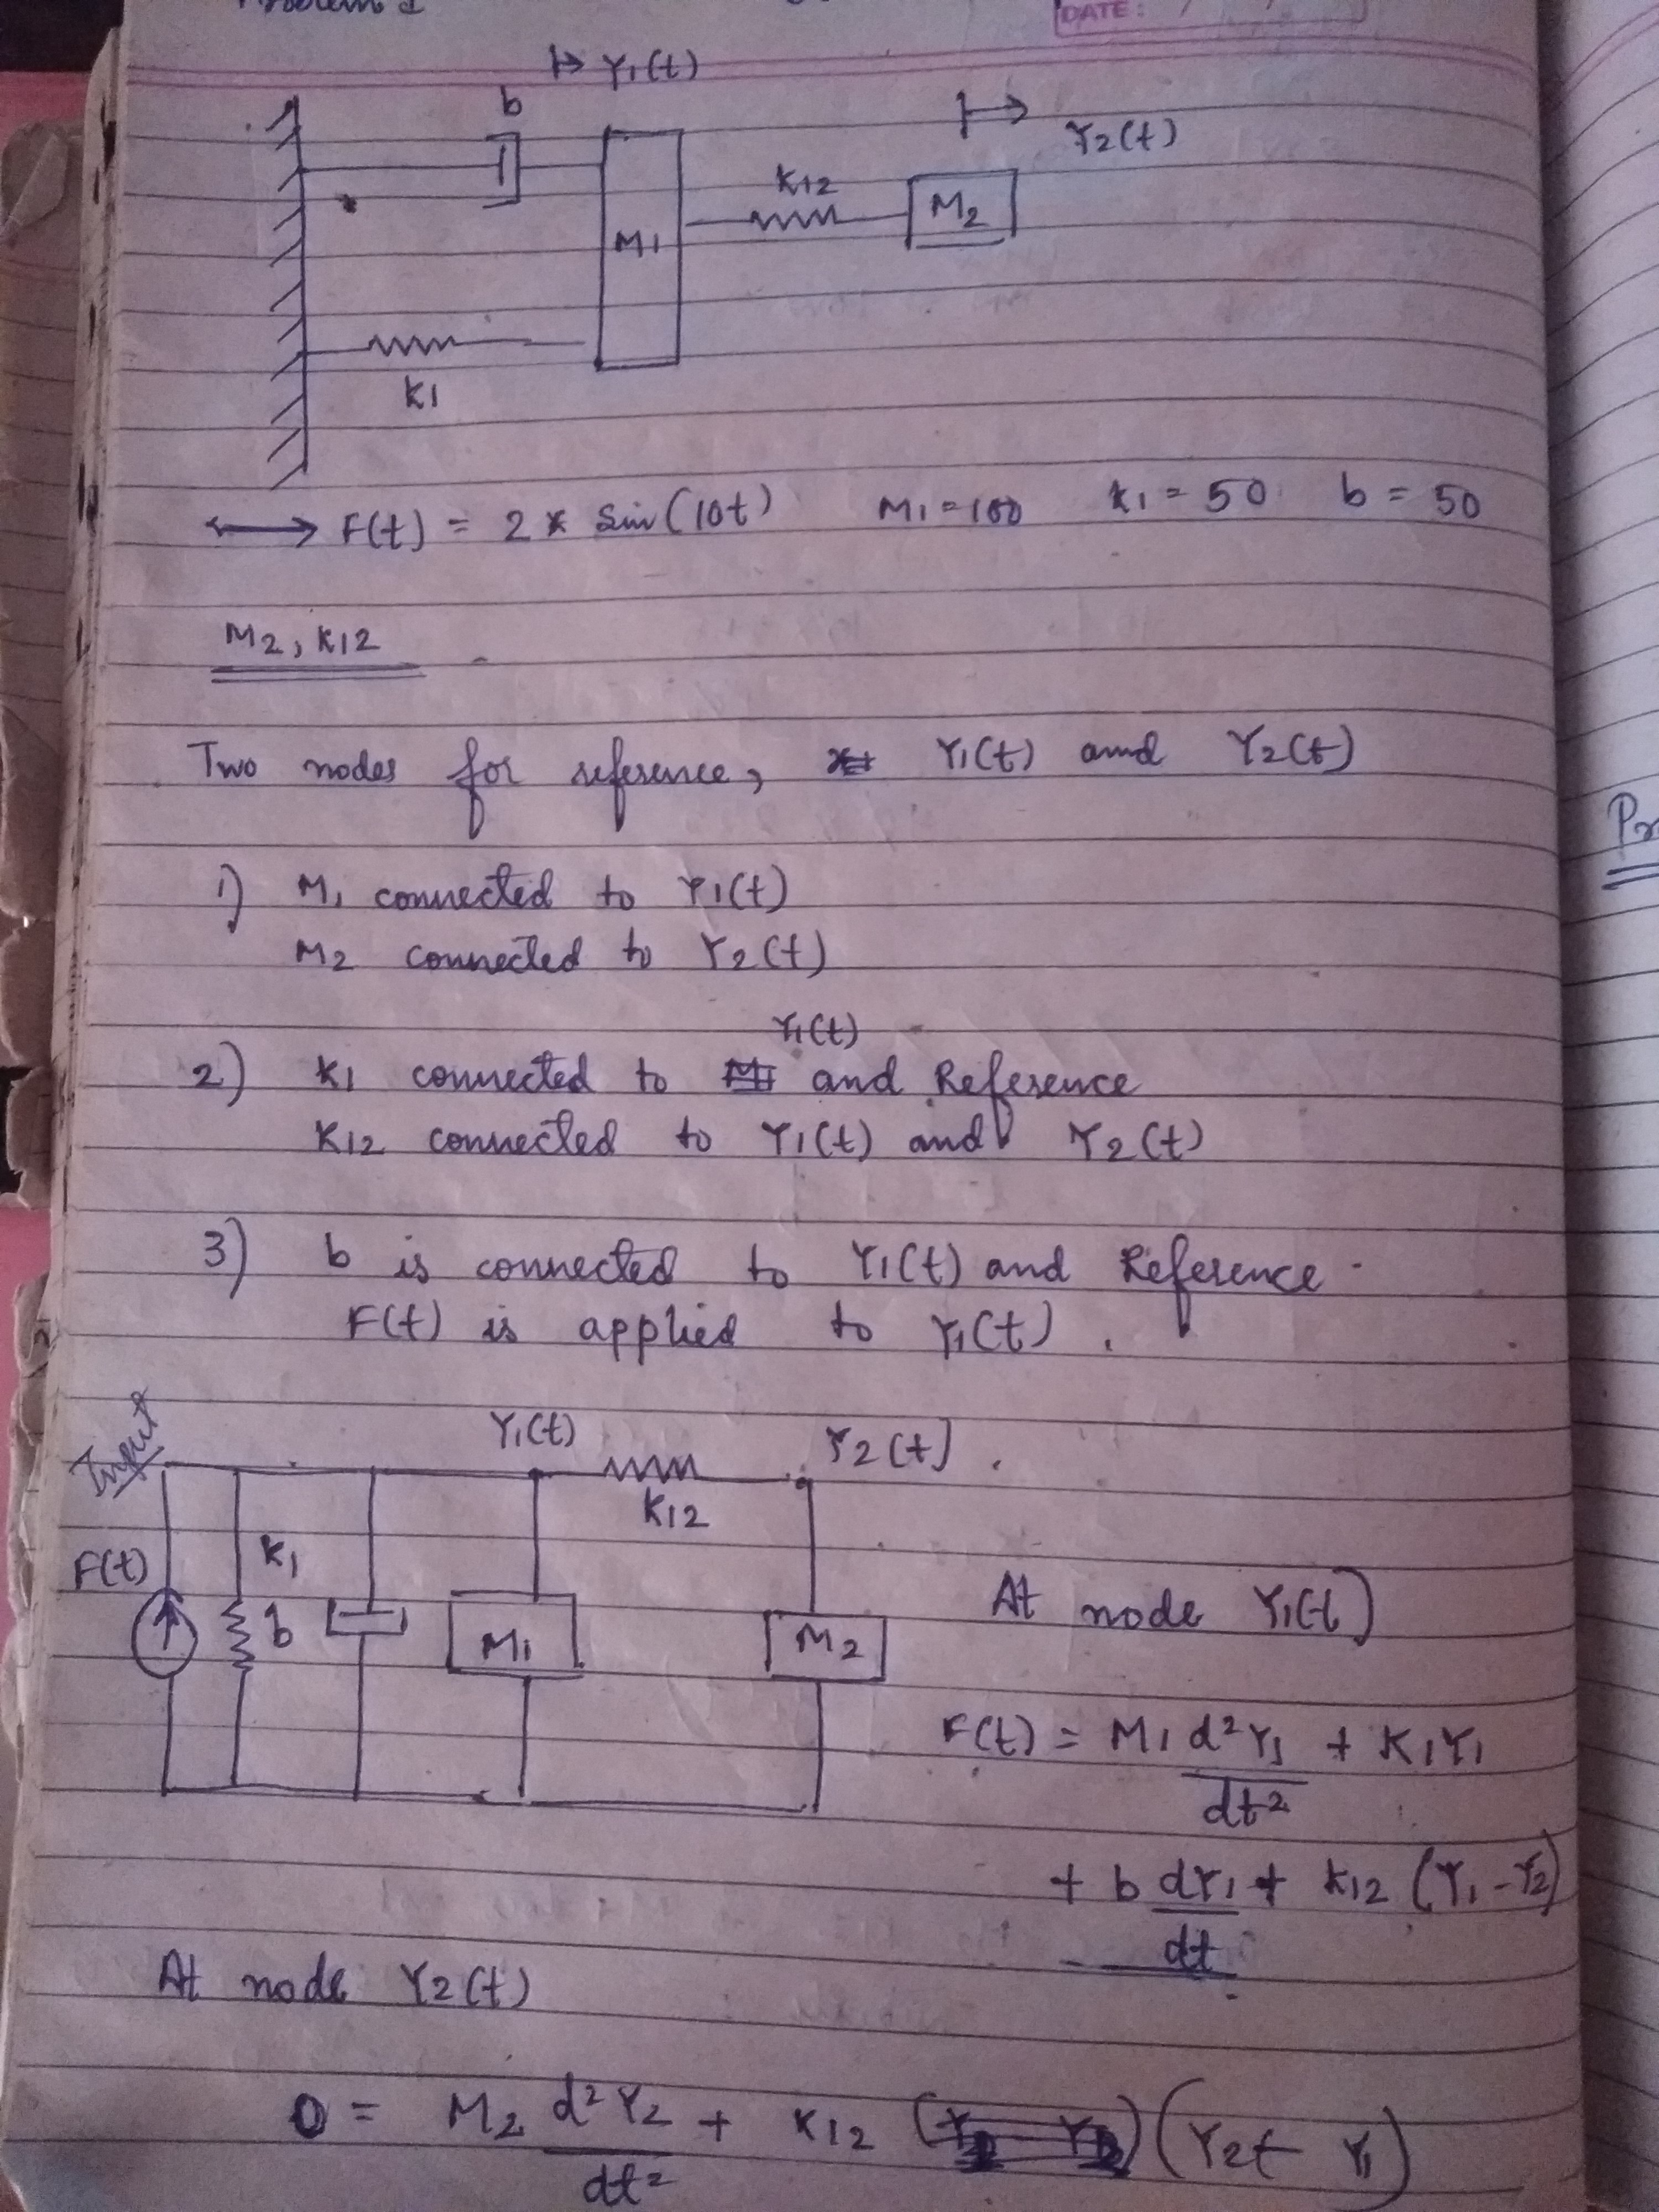 Problem 1
DATE: / /
↦ Y1(t)
b
Y2(t)
K12
M2
M1
K1
F(t) = 2 * Sin(10t) M1 = 100 K1 = 50 b = 50
M2, K12
Two nodes for reference, Y1(t) and Y2(t)
1) M1 connected to Y1(t)
M2 connected to Y2(t)
Y1(t)
2) K1 connected to and Reference
K12 connected to Y1(t) and Y2(t)
3) b is connected to Y1(t) and Reference.
F(t) is applied to Y1(t).
Input
Y1(t)
Y2(t).
K12
K1
F(t)
b
M1
M2
At node Y1(t)
F(t) = M1 d²Y1/dt² + K1Y1
+ b dY1/dt + K12 (Y1 - Y2)
At node Y2(t)
0 = M2 d²Y2/dt² + K12 (Y2 - Y1)